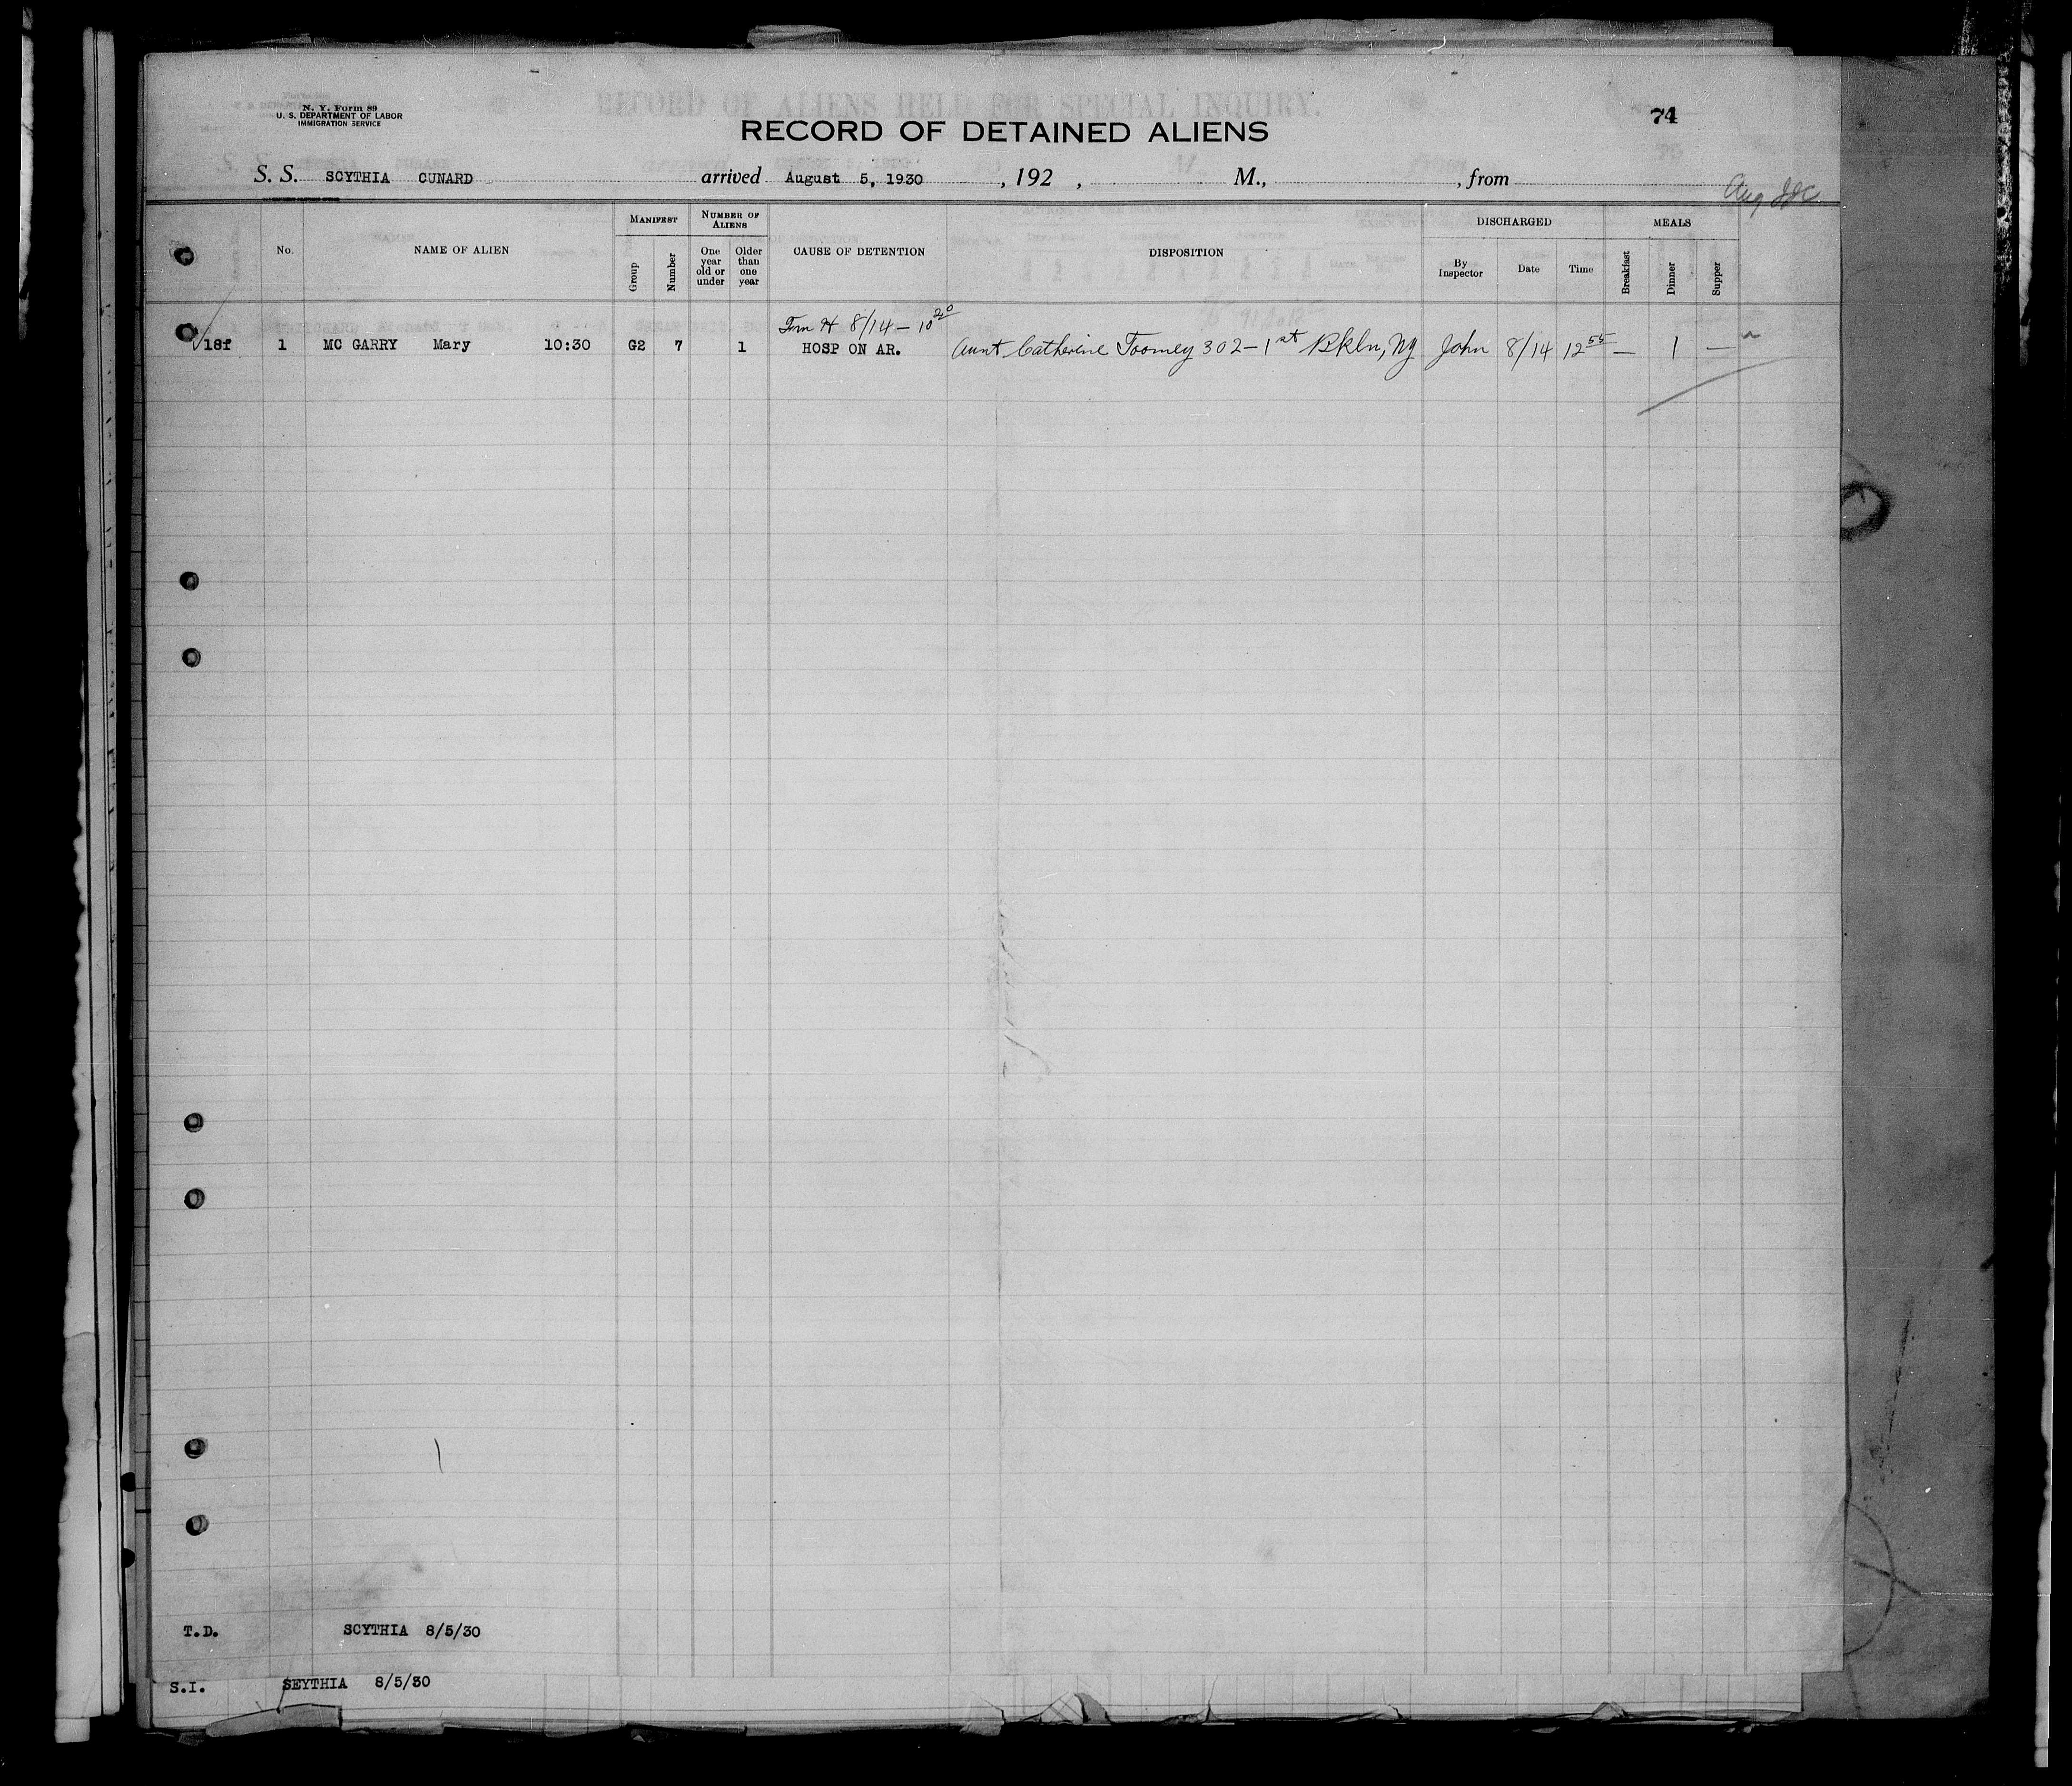 N. Y. Form 89
U. S. DEPARTMENT OF LABOR
IMMIGRATION SERVICE
74
RECORD OF DETAINED ALIENS
S. S. SCYTHIA CUNARD arrived August 5, 1930, 192 , M., , from
Aug
No. NAME OF ALIEN MANIFEST Group Number NUMBER OF ALIENS One year old or under Older than one year CAUSE OF DETENTION DISPOSITION DISCHARGED By Inspector Date Time MEALS Breakfast Dinner Supper
8/14 – 10 20
18f 1 MC GARRY Mary 10:30 G2 7 1 HOSP ON AR. Aunt Catherine Toomey 302 – 1st Bkln, NY John 8/14 12 55 — 1 —
T.D. SCYTHIA 8/5/30
S.I. SEYTHIA 8/5/30